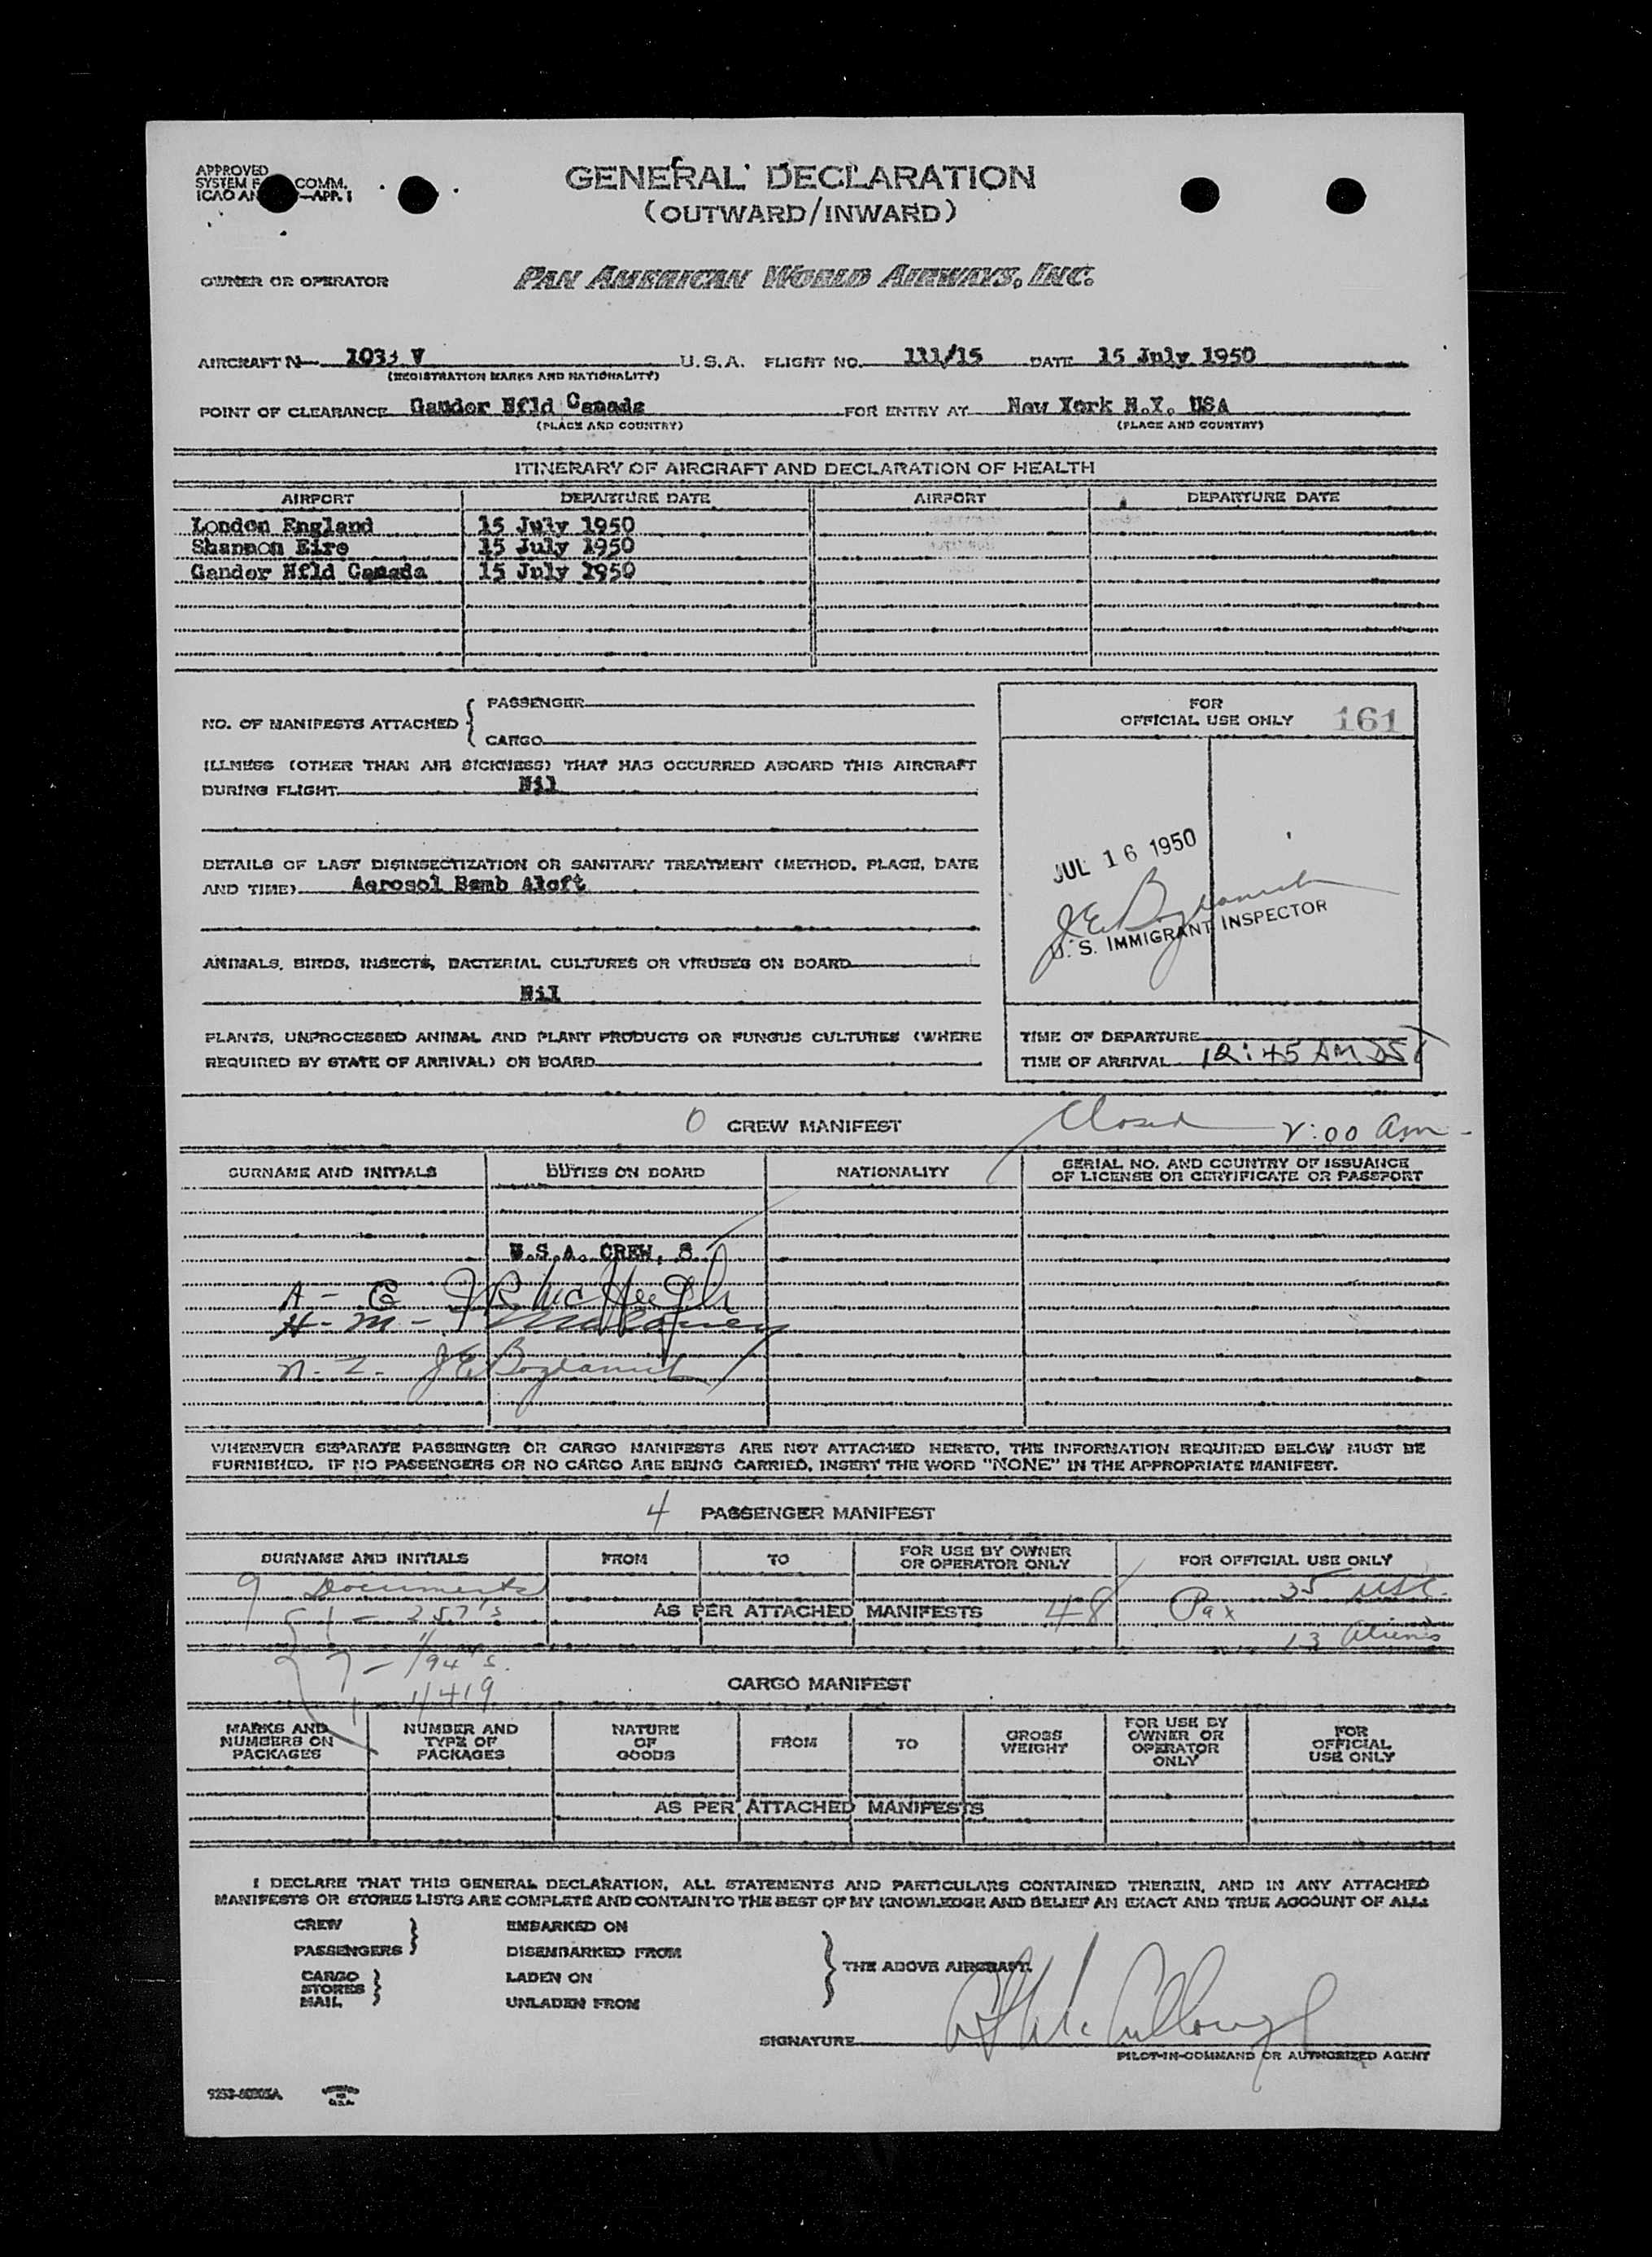 APPROVED
SYSTEM COMM.
ICAO AN —APP. 1
GENERAL DECLARATION
(OUTWARD/INWARD)
OWNER OR OPERATOR PAN AMERICAN WORLD AIRWAYS, INC.
AIRCRAFT N 1033 V U.S.A. FLIGHT NO. 111/15 DATE 15 July 1950
(REGISTRATION MARKS AND NATIONALITY)
POINT OF CLEARANCE Gander Nfld Canada FOR ENTRY AT New York N.Y. USA
(PLACE AND COUNTRY) (PLACE AND COUNTRY)
ITINERARY OF AIRCRAFT AND DECLARATION OF HEALTH
AIRPORT DEPARTURE DATE AIRPORT DEPARTURE DATE
London England 15 July 1950
Shannon Eire 15 July 1950
Gander Nfld Canada 15 July 1950
NO. OF MANIFESTS ATTACHED { PASSENGER
CARGO
FOR
OFFICIAL USE ONLY 161
ILLNESS (OTHER THAN AIR SICKNESS) THAT HAS OCCURRED ABOARD THIS AIRCRAFT
DURING FLIGHT Nil
DETAILS OF LAST DISINSECTIZATION OR SANITARY TREATMENT (METHOD, PLACE, DATE
AND TIME) Aerosol Bomb Aloft
JUL 16 1950
J E Bogdanich
U. S. IMMIGRANT INSPECTOR
ANIMALS, BIRDS, INSECTS, BACTERIAL CULTURES OR VIRUSES ON BOARD
Nil
PLANTS, UNPROCESSED ANIMAL AND PLANT PRODUCTS OR FUNGUS CULTURES (WHERE
REQUIRED BY STATE OF ARRIVAL) ON BOARD
TIME OF DEPARTURE
TIME OF ARRIVAL 12:45 AM DST
0 CREW MANIFEST Closed 2:00 am
SURNAME AND INITIALS DUTIES ON BOARD NATIONALITY SERIAL NO. AND COUNTRY OF ISSUANCE
OF LICENSE OR CERTIFICATE OR PASSPORT
U.S.A. CREW, 8
A - C J R McHugh
H - M -
N. Z. J E Bogdanich
WHENEVER SEPARATE PASSENGER OR CARGO MANIFESTS ARE NOT ATTACHED HERETO, THE INFORMATION REQUIRED BELOW MUST BE
FURNISHED. IF NO PASSENGERS OR NO CARGO ARE BEING CARRIED, INSERT THE WORD "NONE" IN THE APPROPRIATE MANIFEST.
4 PASSENGER MANIFEST
SURNAME AND INITIALS FROM TO FOR USE BY OWNER
OR OPERATOR ONLY FOR OFFICIAL USE ONLY
9 Documents 35 USC.
1 - 257's AS PER ATTACHED MANIFESTS 48 Pax
13 Aliens
7 - 1/94's.
1 - 1/419
CARGO MANIFEST
MARKS AND
NUMBERS ON
PACKAGES
NUMBER AND
TYPE OF
PACKAGES
NATURE
OF
GOODS
FROM
TO
GROSS
WEIGHT
FOR USE BY
OWNER OR
OPERATOR
ONLY
FOR
OFFICIAL
USE ONLY
AS PER ATTACHED MANIFESTS
I DECLARE THAT THIS GENERAL DECLARATION, ALL STATEMENTS AND PARTICULARS CONTAINED THEREIN, AND IN ANY ATTACHED
MANIFESTS OR STORES LISTS ARE COMPLETE AND CONTAIN TO THE BEST OF MY KNOWLEDGE AND BELIEF AN EXACT AND TRUE ACCOUNT OF ALL:
CREW EMBARKED ON
PASSENGERS } DISEMBARKED FROM
CARGO LADEN ON
STORES }
MAIL UNLADEN FROM
} THE ABOVE AIRCRAFT.
SIGNATURE McCullough
PILOT-IN-COMMAND OR AUTHORIZED AGENT
PRINTED
IN
U.S.A.